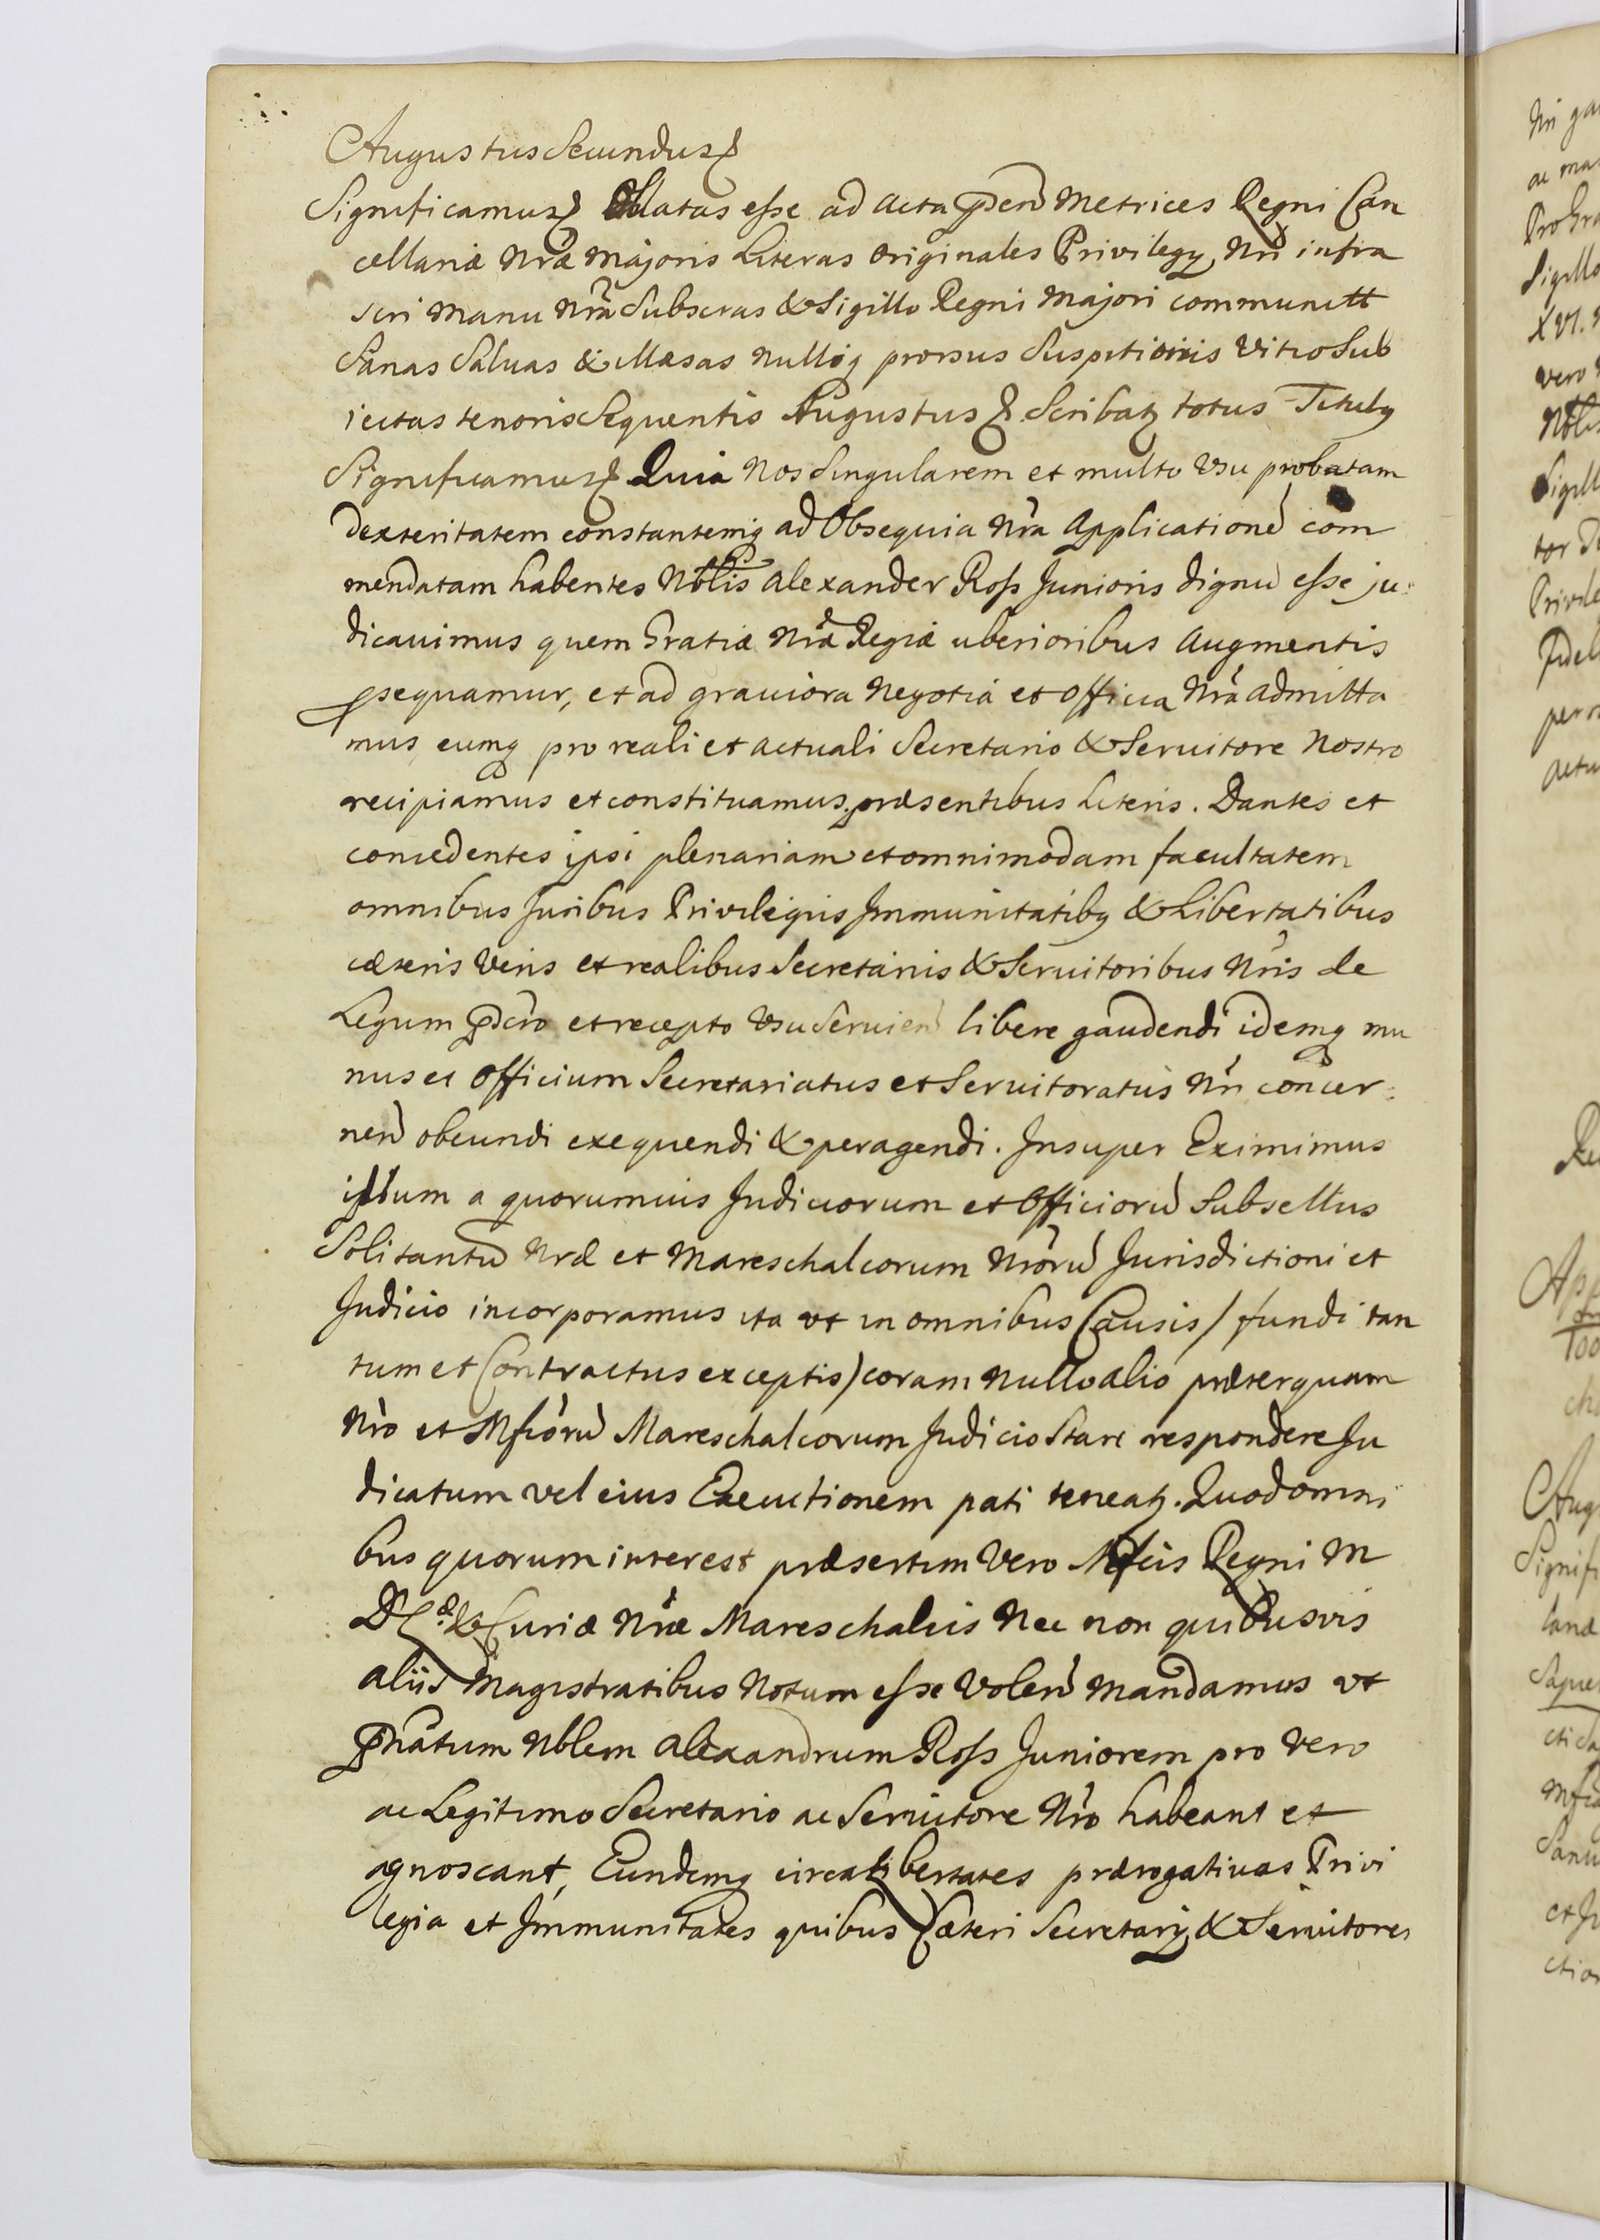 Augustus Secundus
Significamus Oblatas esse ad acta pñden Metrices Regni Can
cellariæ Nræ Majoris Literas originales Privilegy Nri infra
scri Manu Nra Subscras & Sigillo Regni Majori communitt
Sanas Salvas & illæsas nulloq prorsus Suspitionis Vitio Sub
iectas tenoris Sequentis Augustus Scribatz totus Titulq
Significamus Quia Nos Singularem et multo Vsu probatam
dexteritatem constantemq ad Obsequia Nra Applicatione com
mendatam habentes Nblis Alexander Ross Junioris dignu esse ju:
dicauimus quem Gratiæ Nræ Regiæ uberioribus Augmentis
psequamur, et ad grauiora Negotia et Officia Nra admitta
mus eumq pro reali et actuali Secretario & Seruitore Nostro
recipiamus et constituamus præsentibus Literis. Dantes et
concedentes ipsi plenariam et omnimodam facultatem
omnibus Juribus Privilegiis Immunitatibq & Libertatibus
cæteris Veris et realibus Secretariis & Seruitoribus Nris de
Legum pscro et recepto Vsu Seruien libere gaudendi idemq mu
nus et Officium Secretariatus et Seruitoratus Nri concer:
nen obeundi exequendi & peragendi. Insuper Eximimus
illum a quorumuis Judiciorum et Officioru Subselliis
Soli tantu Nræ et Mareschalcorum Nroru Jurisdictioni et
Judicio incorporamus ita vt in omnibus Causis / fundi tan
tum et Contractus exceptis) coram nullo alio præterquam
Nro et Mfcoru Mareschalcorum Judicio Stare respondere Ju
dicatum vel eius Executionem pati teneatz. Quod omni
bus quorum interest præsertim Vero Mfcis Regni M
D L & Curiæ Nræ Mareschalcis Nec non quibusvis
aliis Magistratibus Notum esse Volen mandamus vt
pnatum Nblem Alexandrum Ross Juniorem pro Vero
ac Legitimo Secretario ac Seruitore Nro habeant et
agnoscant, Eundemq circa Libertates prærogativas Privi
legia et Immunitates quibus Cæteri Secretarÿ & Seruitores